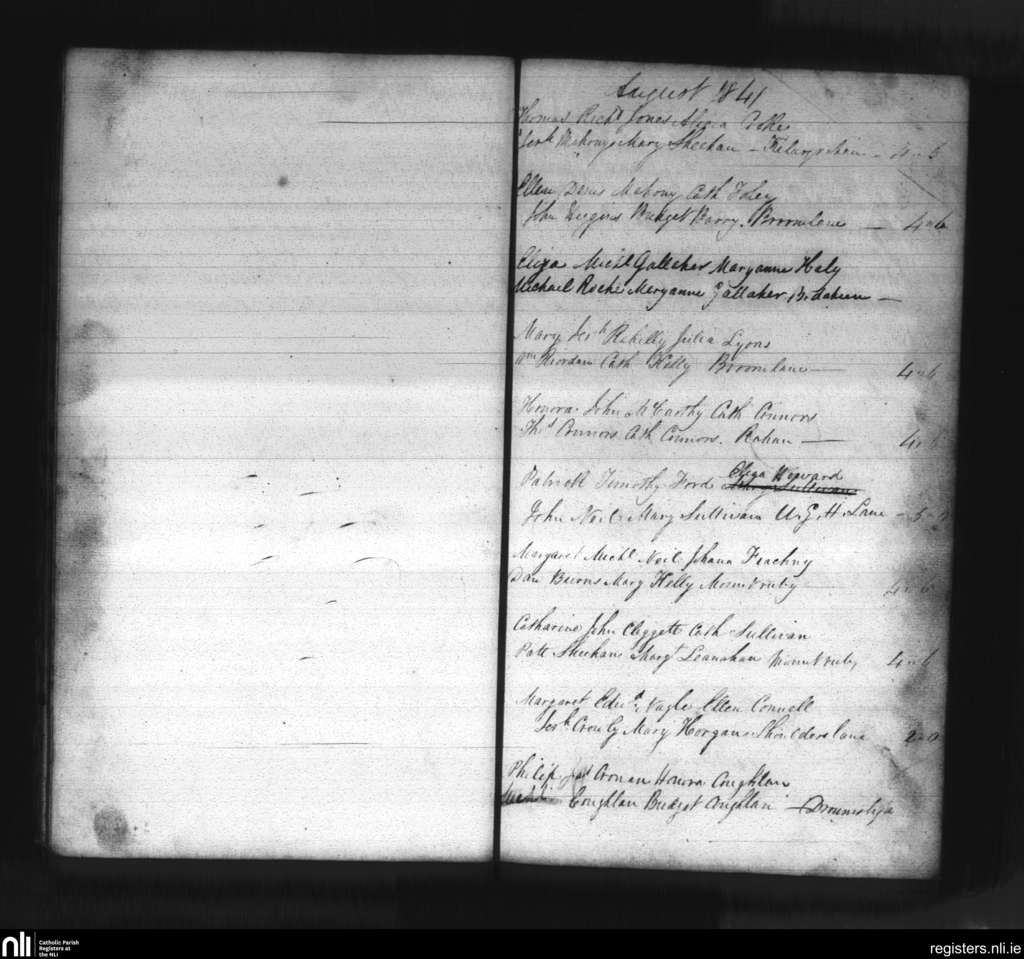 August 1841
Thomas Richd Jones Alicia
Jerh Mahony Mary Sheehan
Ellen Denis Mahony Cath Foley
John Higgins Bridget Barry Broomlane — 4-6
Eliza Michl Gallaher Maryanne Haly
Michael Roche Maryanne Gallaher
Mary Jerh Rahilly Julia Lyons
Wm Riordan Cath Kelly Broomlane — 4-6
Honora John McCarthy Cath Connors
Thos Connors Cath Connors. Rahan —
Patrick Timothy Ford Eliza Howard
John Neil Mary Sullivan U. G. H. Lane
Margaret Michl Neil Johana
Dan Burns Mary Kelly Mountruby
Catharine John Cliggett Cath Sullivan
Patt Sheehan Margt Leanahan Mountruby 4-6
Margaret Edwd Nagle Ellen Connell
Jerh Crouly Mary Horgan Shoulderslane
Philip Cronan Honora Coughlan
Michl Coughlan Bridget Coughlan —
nli
Catholic Parish
Registers at
the NLI
registers.nli.ie